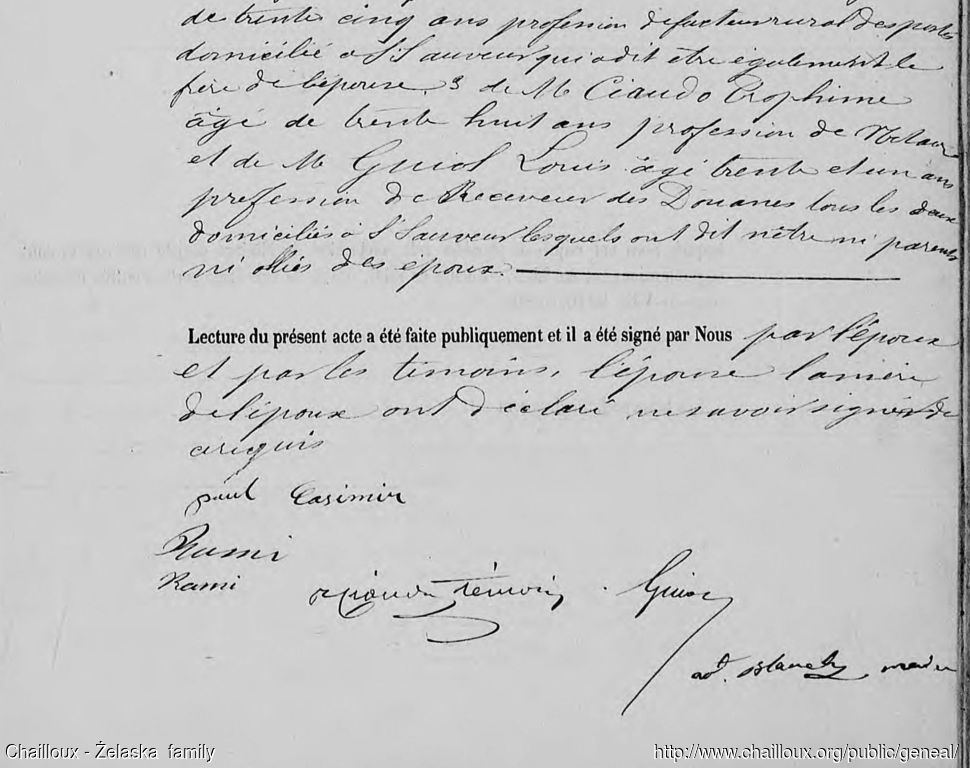 de trente cinq ans profession de facteur rural des postes
domicilié à St Sauveur qui a dit être également le
frère de l'épouse, 3 de M Ciaudo Trophime
âgé de trente huit ans profession de Notaire
et de M Guiol Louis âgé trente et un ans
profession de Receveur des Douanes tous les deux
domiciliés à St Sauveur lesquels ont dit n'être ni parents
ni alliés des époux.
Lecture du présent acte a été faite publiquement et il a été signé par Nous par l'époux
et par les temoins, l'épouse la mère
de l'époux ont déclaré ne savoir signer de
ce requis
paul Casimir
Rami
Rami
Ciaudo témoin Guiol
ad. Blanchy maire
Chailloux - Želaska family
http://www.chailloux.org/public/geneal/